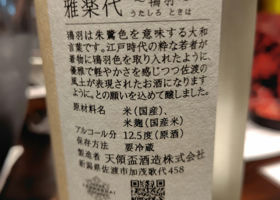 雅楽代 〜鴇羽〜
うたしろ ときは
鴇羽は朱鷺色を意味する大和
言葉です。江戸時代の粋な若者が
着物に鴇羽色を取り入れたように、
優雅で軽やかさを感じつつ佐渡の
風土が表現されたお酒になります
ように。との願いを込めて醸しました。
原材料名 米(国産)、
米麹(国産米)
アルコール分 12.5度(原酒)
保存方法 要冷蔵
製造者 天領盃酒造株式会社
新潟県佐渡市加茂歌代458